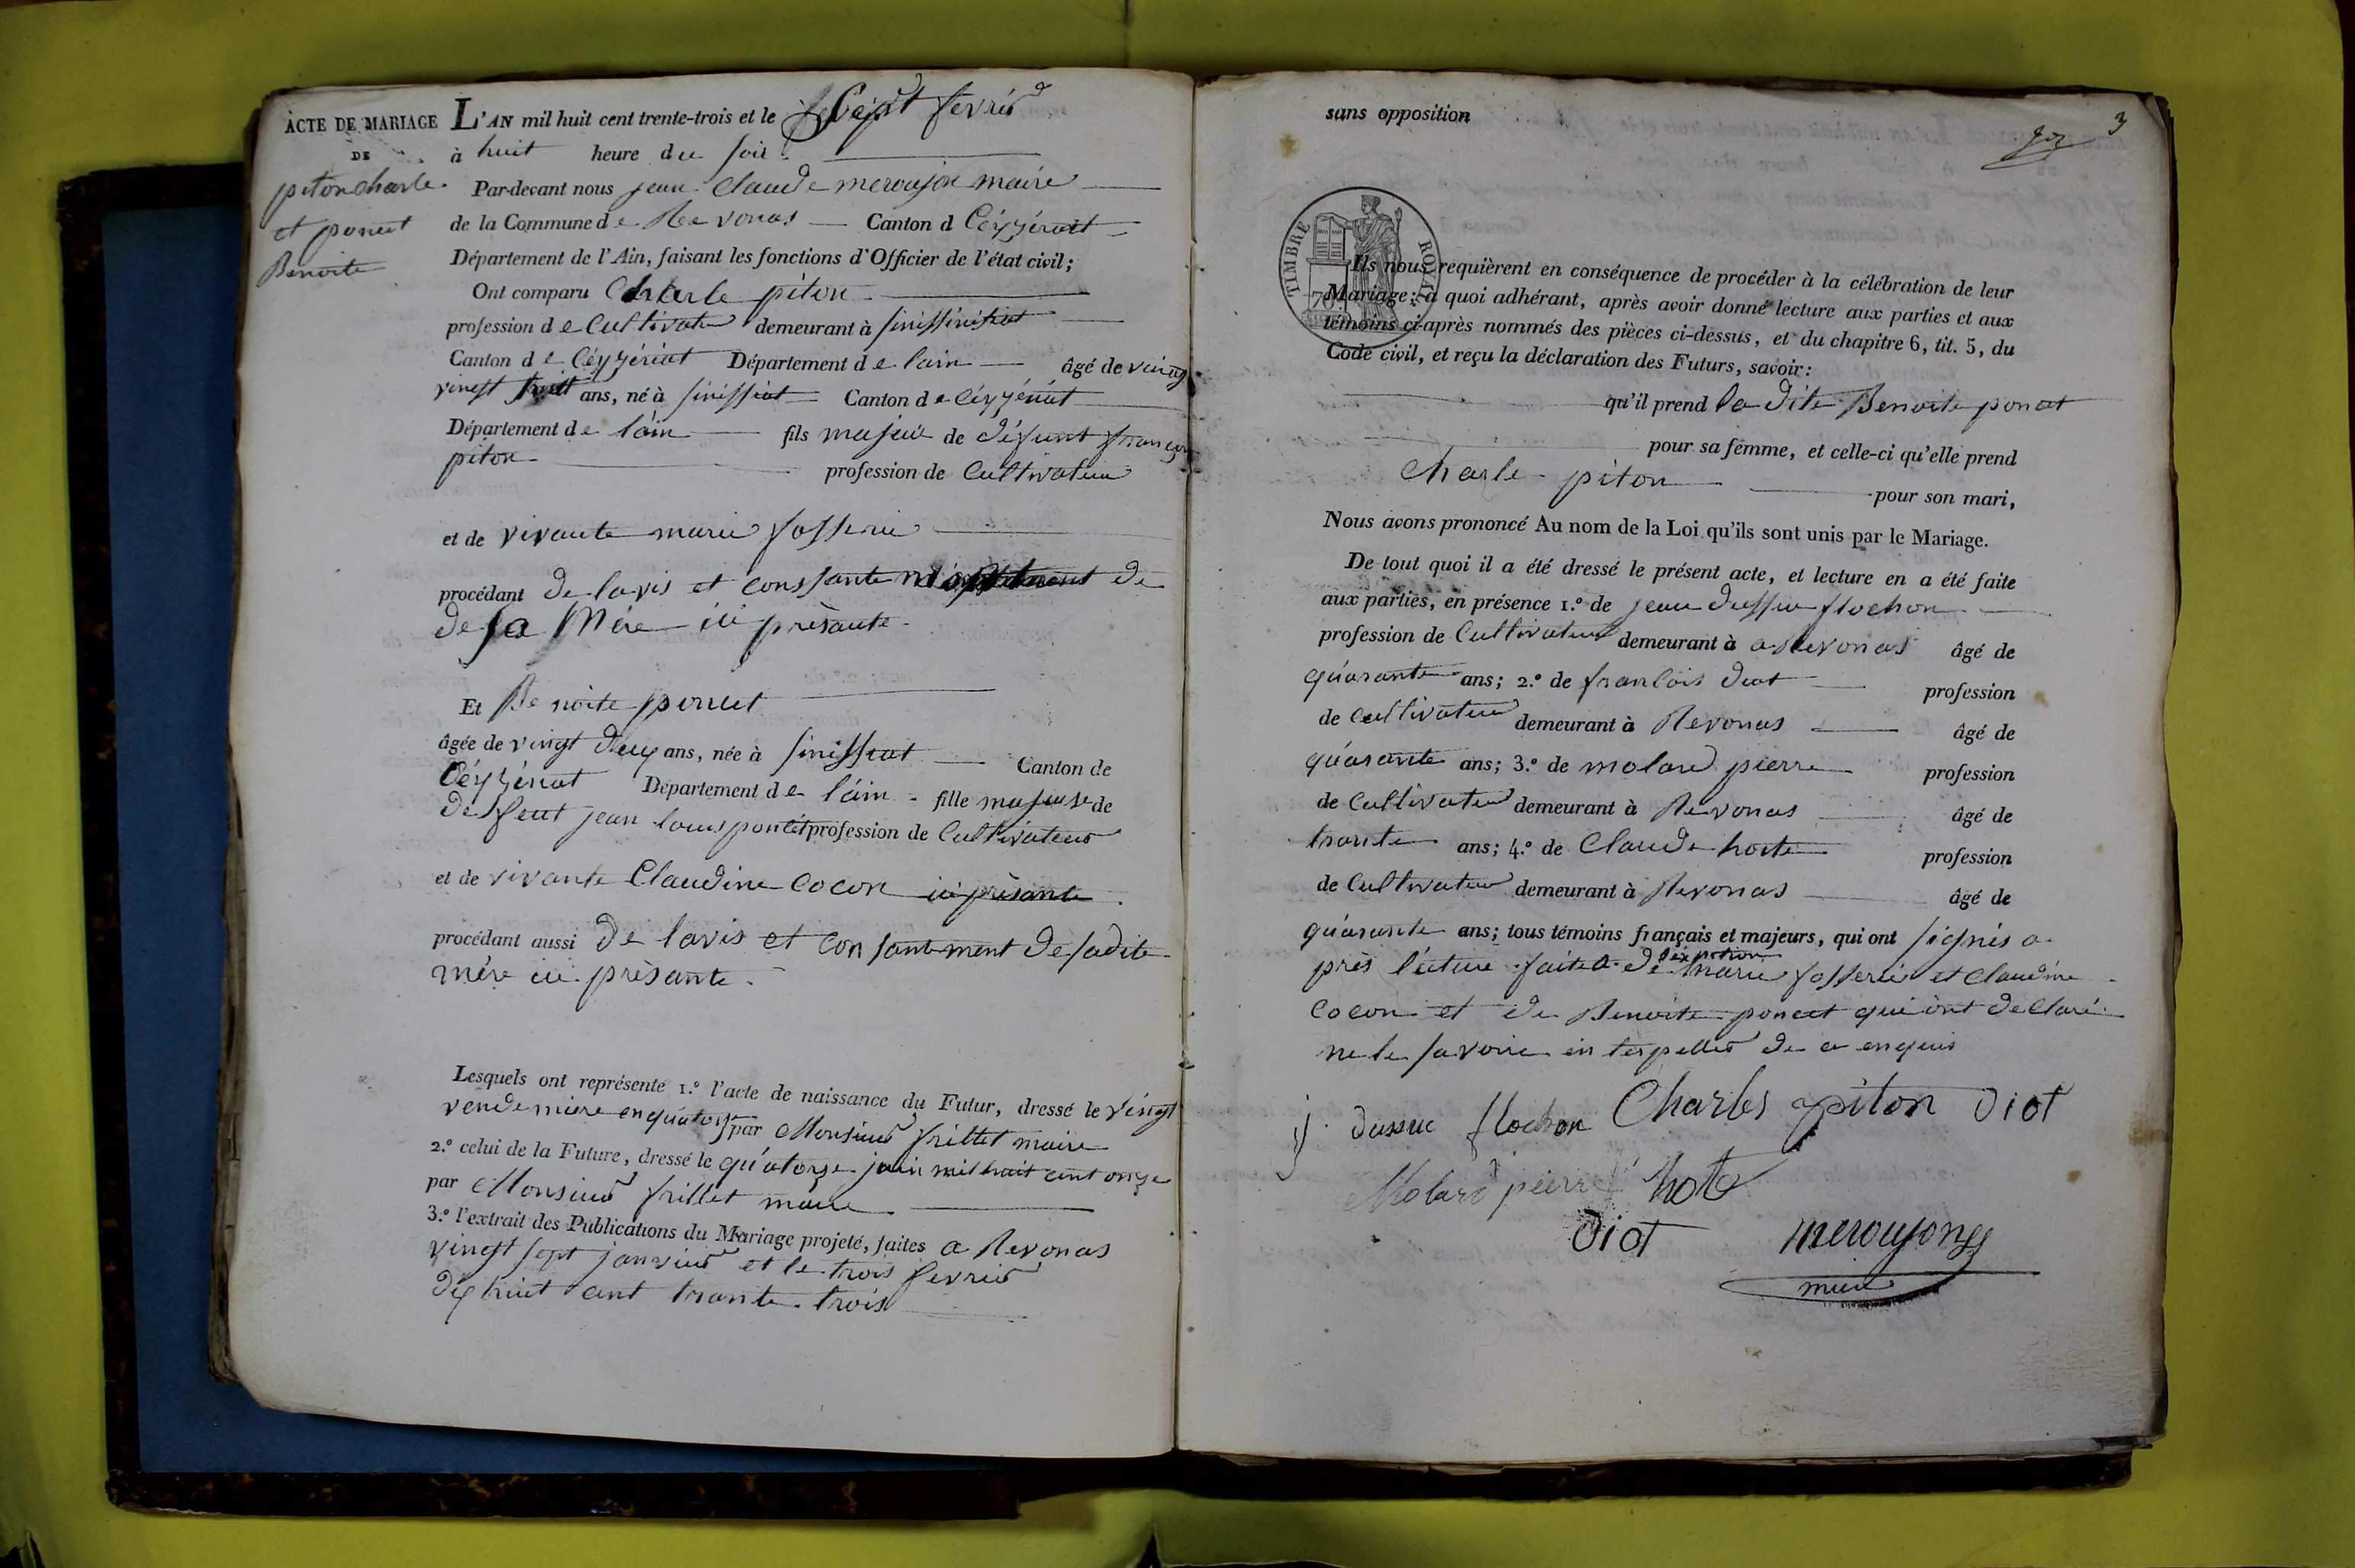 ACTE DE MARIAGE L'AN mil huit cent trente-trois et le Sept fevrier
DE à huit heure du soir
piton charle Par-devant nous jean Claude meroujon maire
et poncet de la Commune de Revonas Canton d Céyzériat
Benoite Département de l'Ain, faisant les fonctions d'Officier de l'état civil;
Ont comparu Charle piton
profession de Cultivateur demeurant à
Canton de Céyzériat Département de lain âgé de vaing
vingt huit ans, né à sinissiat Canton de Céyzériat
Département de láin fils majeur de défunt françois
piton profession de Cultivateur
et de vivante marie fosserie
procédant de lavis et consante de
de sa Mére ici présante
Et Benoite poncet
âgée de vingt deux ans, née à sinissiat Canton de
Céyzériat Département de láin fille majeure de
deffeut jean louis poncet profession de Cultivateur
et de vivante Claudine Cocon ici présante
procédant aussi de lavis et consantement de sadite
mére ici présante
Lesquels ont représenté 1.º l'acte de naissance du Futur, dressé le vingt
vendemiere en quatorze par Monsieur frillet maire
2.º celui de la Future, dressé le quatorze juin mil huit cent onze
par Monsieur frillet maire
3.º l'extrait des Publications du Mariage projeté, faites a Revonas
vingt sept janvier et le trois fevrier
dix huit cent trante trois
sans opposition
3
TIMBRE ROYAL
70
Ils nous requièrent en conséquence de procéder à la célébration de leur
Mariage; à quoi adhérant, après avoir donné lecture aux parties et aux
témoins ci-après nommés des pièces ci-dessus, et du chapitre 6, tit. 5, du
Code civil, et reçu la déclaration des Futurs, savoir:
qu'il prend la dite Benoite poncet
pour sa femme, et celle-ci qu'elle prend
charle piton pour son mari,
Nous avons prononcé Au nom de la Loi qu'ils sont unis par le Mariage.
De tout quoi il a été dressé le présent acte, et lecture en a été faite
aux parties, en présence 1.º de jean dussuc flochon
profession de Cultivateur demeurant à a Revonas âgé de
quarante ans; 2.º de francois diot profession
de cultivateur demeurant à Revonas âgé de
quarante ans; 3.º de molard pierre profession
de cultivateur demeurant à Revonas âgé de
trante ans; 4.º de Claude hoste profession
de Cultivateur demeurant à Revonas âgé de
quarante ans; tous témoins français et majeurs, qui ont signés a
près lécture faite a déxption de marie fosserie et claudine
Cocon et de Benoite poncet qui ont declaré
ne le savoire en terpeller de ce enquis
j dussuc flochon Charles piton diot
Molard peirre hote
diot meroujon
maire